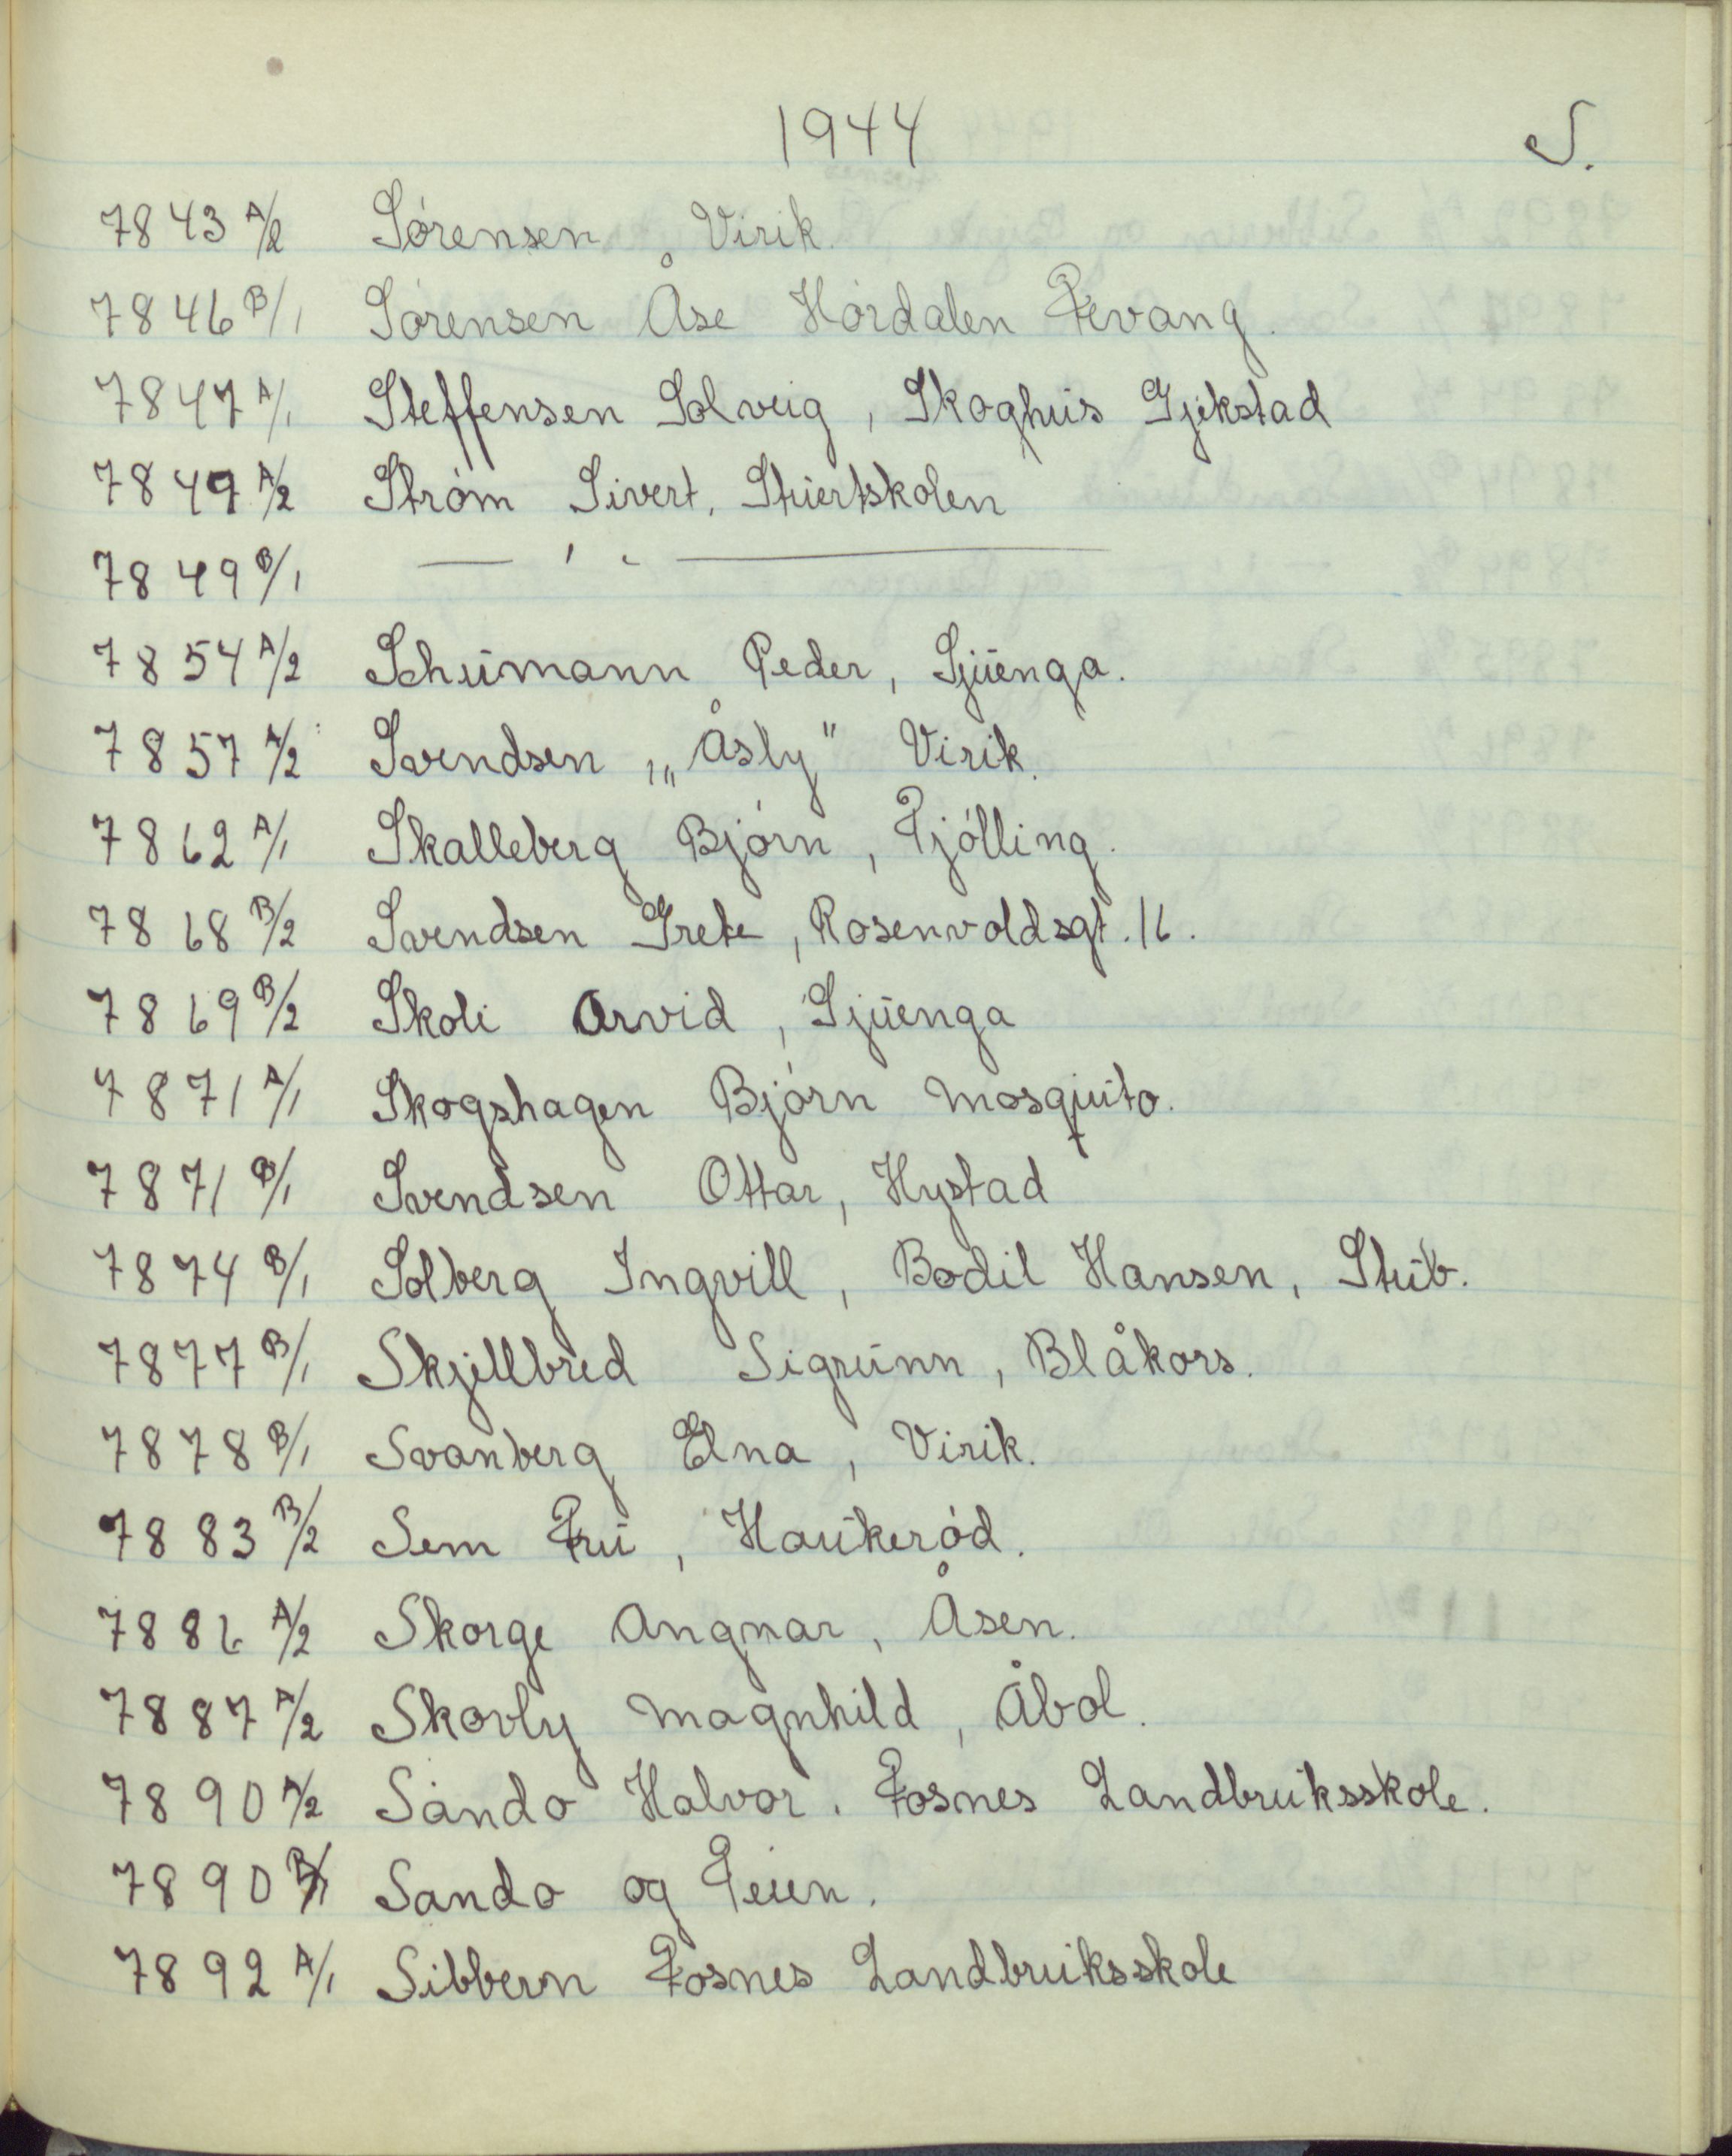 1944 S.
7843 A/2 Sörensen, Virik
7846 B/1 Sörensen Åse Hördalen Fevang.
7847 A/1 Steffensen Solveig, Skoghus Gjekstad
7849 A/2 Ström Sivert, Stuertskolen
7849 B/1 — " —
7854 A/2 Schumann Peder, Sjuenga.
7857 A/2 Svendsen, „Åsly" Virik.
7862 A/1 Skalleberg Björn, Tjölling.
7868 B/2 Svendsen Grete, Rosenvoldsgt. 16.
7869 B/2 Skoli Arvid, Sjuenga
7871 A/1 Skogshagen Björn Mosquito.
7871 B/1 Svendsen Ottar, Hystad
7874 B/1 Solberg Ingvill, Bodil Hansen, Stub.
7877 B/1 Skjellbred Sigrunn, Blåkors.
7878 B/1 Svanberg Elna, Virik.
7883 B/2 Sem Fru, Haukeröd.
7886 A/2 Skorge Angnar, Åsen.
7887 A/2 Skovly Magnhild, Åbol.
7890 A/2 Sando Halvor. Fosnes Landbruksskole.
7890 B/1 Sando og Teien.
7892 A/1 Sibbern Fosnes Landbruksskole